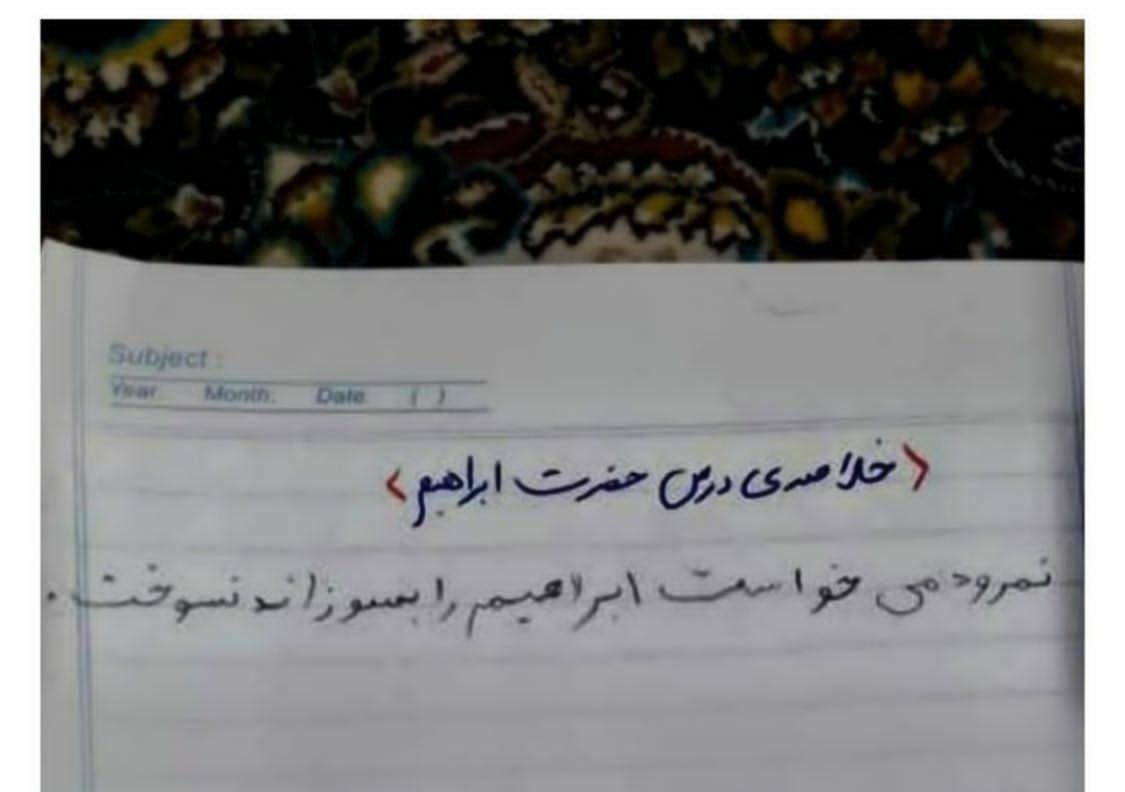 Subject :
Year. Month. Date. ( )
<خلاصه‌ی درس حضرت ابراهیم>
نمرود می خواست ابراهیم را بسوزاند نسوخت.